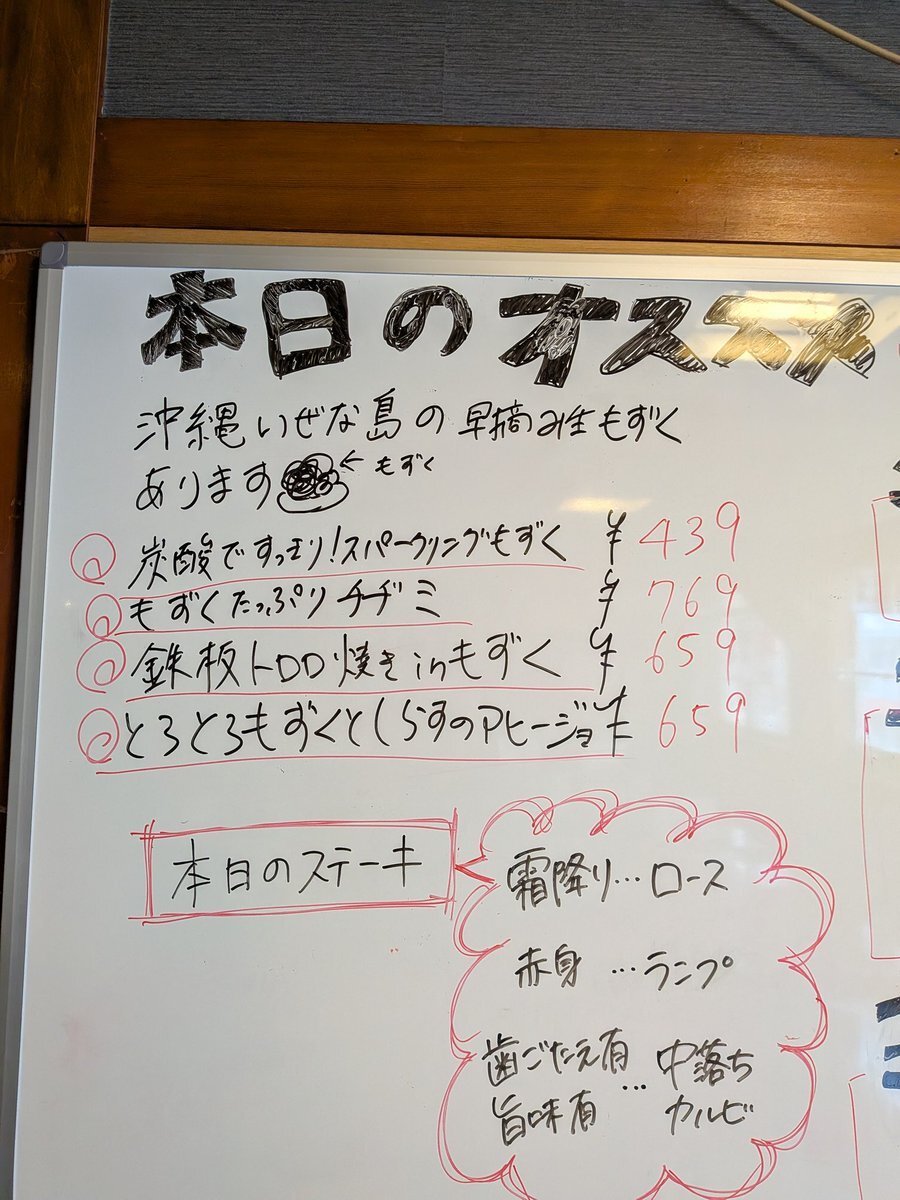 本日のオススメ
沖縄いぜな島の早摘み生もずく
あります ← もずく
炭酸ですっきり!スパークリングもずく ¥439
もずくたっぷりチヂミ ¥769
鉄板トロロ焼き inもずく ¥659
とろとろもずくとしらすのアヒージョ ¥659
本日のステーキ
霜降り…ロース
赤身 …ランプ
歯ごたえ有
旨味有 … 中落ち
カルビ